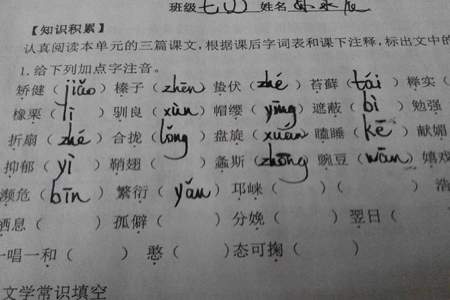 班级 七(1) 姓名
【知识积累】
认真阅读本单元的三篇课文,根据课后字词表和课下注释,标出文中的
1.给下列加点字注音。
矫健(jiǎo)榛子(zhēn)蛰伏(zhé)苔藓(tái)榉实(
橡栗(lì)驯良(xùn)帽缨(yīng)遮蔽(bì)勉强
折扇(zhé)合拢(lǒng)盘旋(xuán)瞌睡(kē)献媚
抑郁(yì)鞘翅()螽斯(zhōng)豌豆(wān)嬉戏
濒危(bīn)繁衍(yǎn)邛崃()()浩
栖息()孤僻()分娩()翌日(
一唱一和()憨()态可掬()
文学常识填空